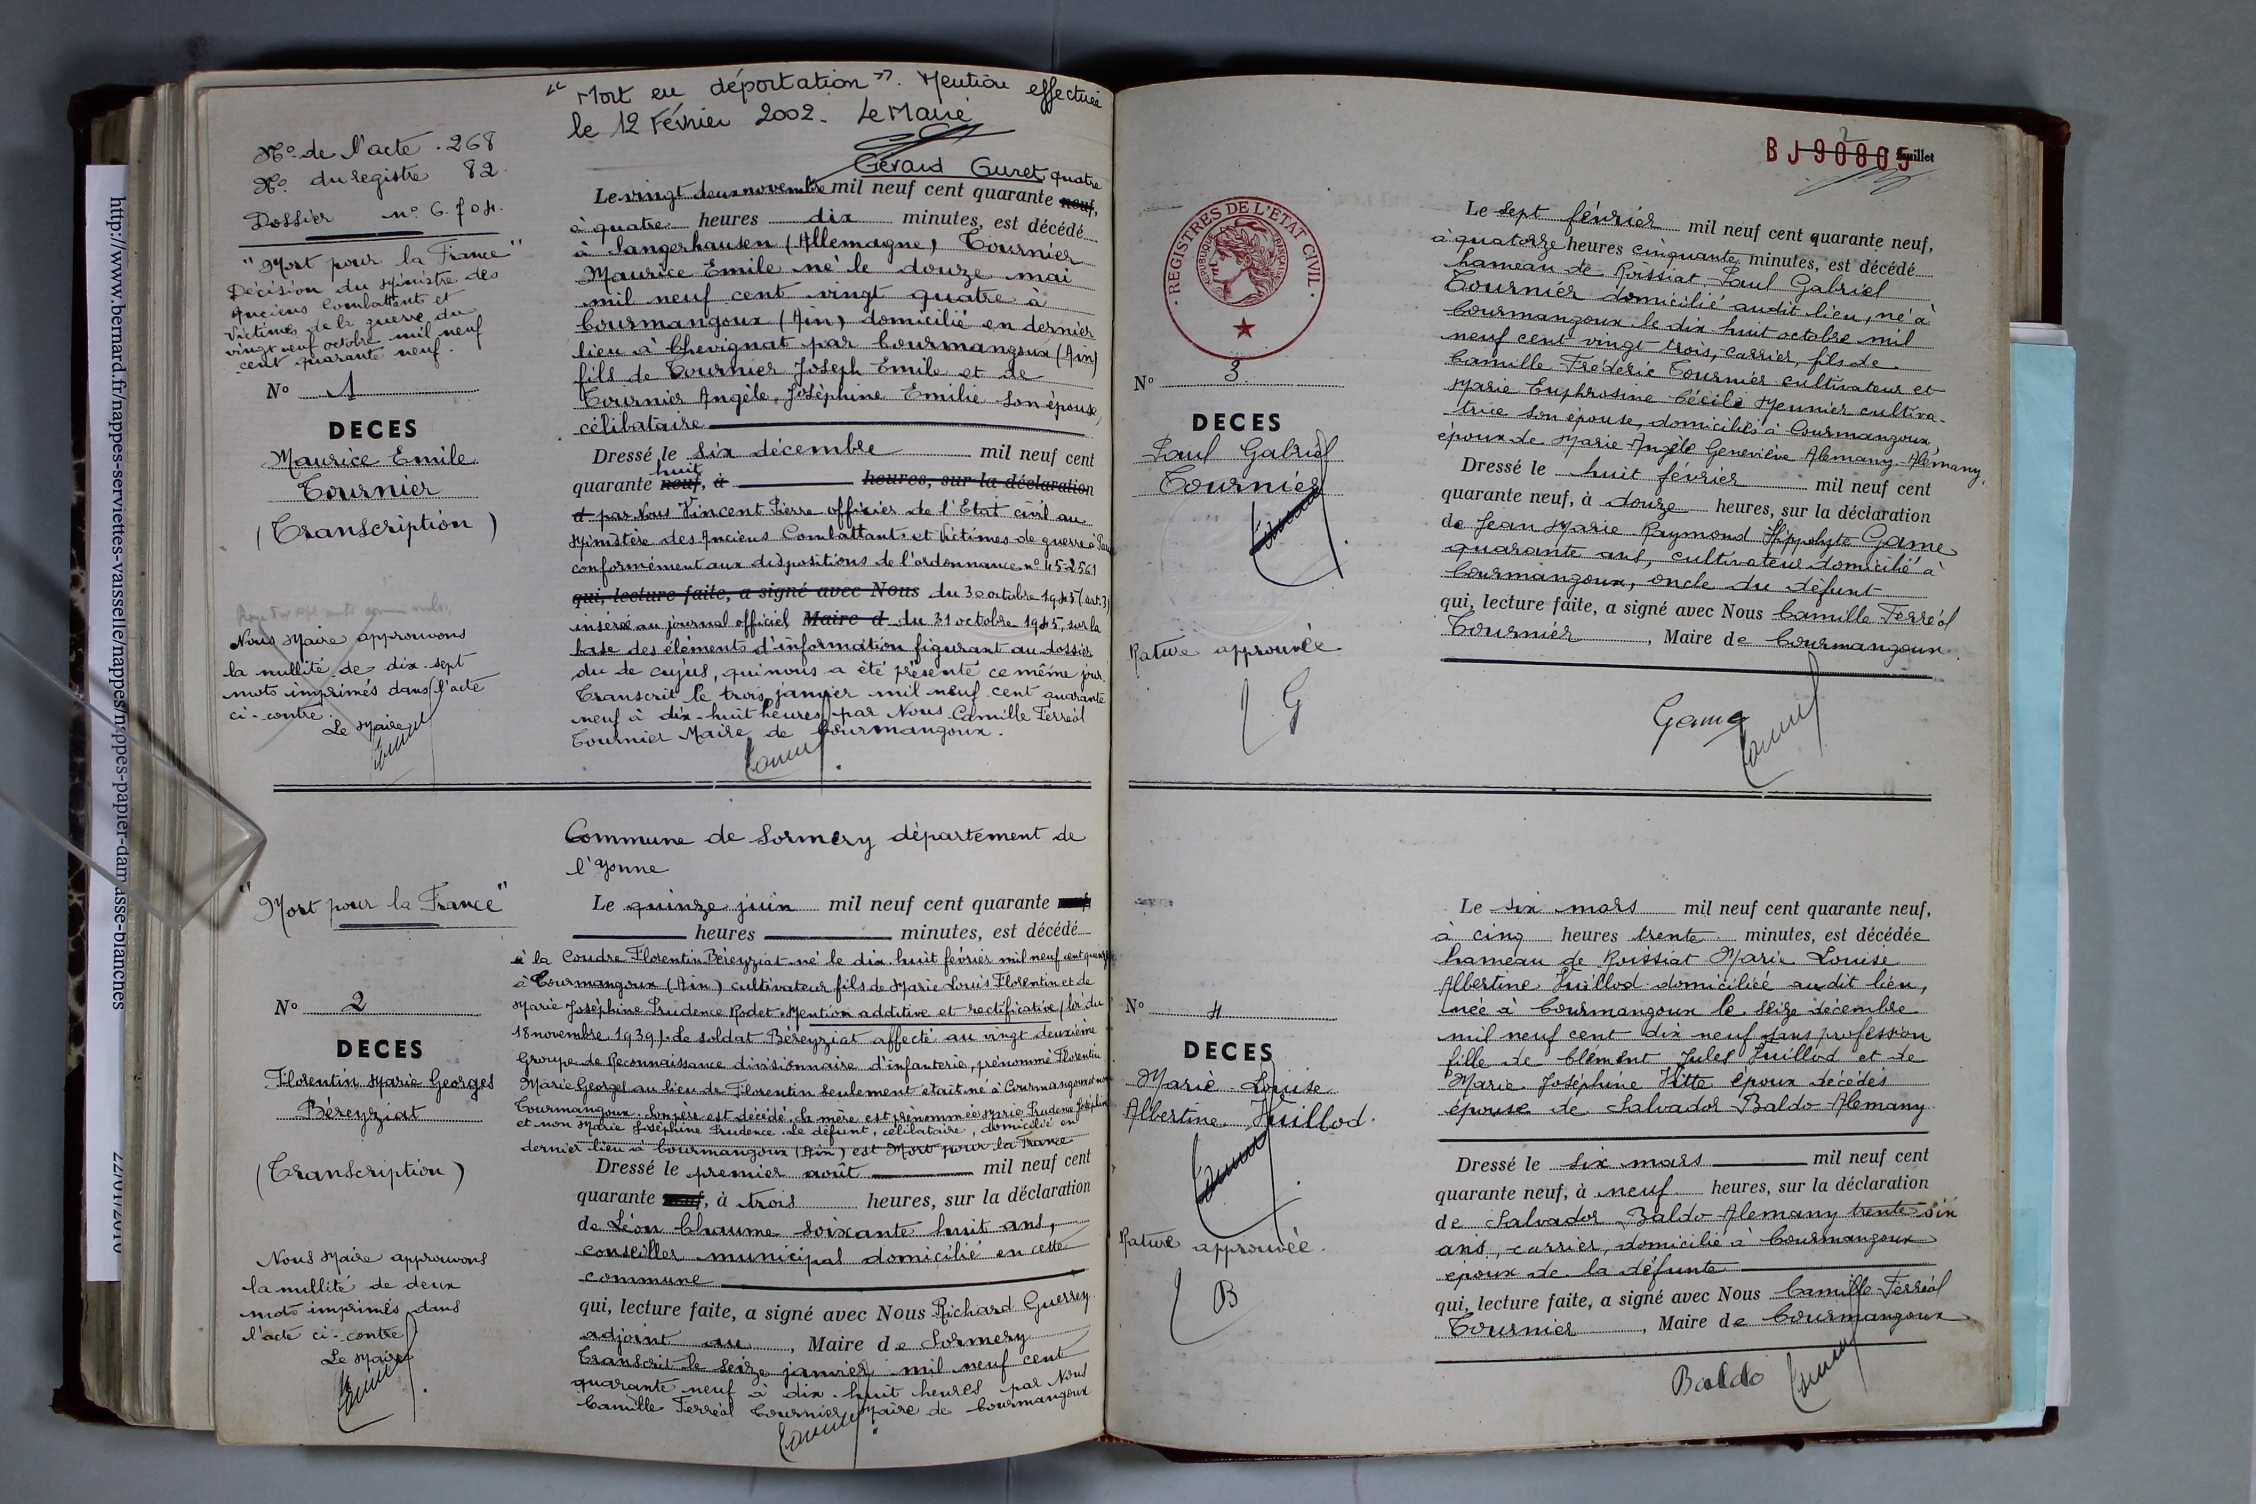 "Mort en déportation". Mention effectuée
le 12 Février 2002. Le Maire
Gérard Guret
N° de l'acte . 268
N° du registre 82.
Dossier n° 6.704.
"Mort pour la France"
Décision du Ministre des
Anciens Combattants et
Victimes de la guerre du
vingt neuf octobre mil neuf
cent quarante neuf.
N° 1
DECES
Maurice Emile
Tournier
(Transcription)
Nous Maire approuvons
la nullité de dix-sept
mots imprimés dans l'acte
ci-contre.
Le Maire
Le vingt deux novembre mil neuf cent quarante neuf, quatre
à quatre heures dix minutes, est décédé
à Sangerhausen (Allemagne) Tournier
Maurice Emile né le douze mai
mil neuf cent vingt quatre à
Courmangoux (Ain) domicilié en dernier
lieu à Chevignat par Courmangoux (Ain)
fils de Tournier Joseph Emile et de
Tournier Angèle, Joséphine Emilie son épouse,
célibataire
Dressé le six décembre mil neuf cent
quarante neuf, huit à heures, sur la déclaration
d par Nous Vincent Pierre officier de l'Etat civil au
Ministère des Anciens Combattants et Victimes de guerre à
conformément aux dispositions de l'ordonnance n° 45-2561
qui, lecture faite, a signé avec Nous du 30 octobre 1945 (art. 3)
inséré au journal officiel Maire d du 31 octobre 1945, sur la
base des éléments d'information figurant au dossier
du de cujus, qui nous a été présenté ce même jour.
Transcrit le trois janvier mil neuf cent quarante
neuf à dix-huit heures par Nous Camille Ferréol
Tournier Maire de Courmangoux.
"Mort pour la France"
N° 2
DECES
Florentin Marie Georges
Béreyziat
(Transcription)
Nous Maire approuvons
la nullité de deux
mots imprimés dans
l'acte ci-contre
Le Maire
Commune de Sormery département de
l'Yonne
Le quinze juin mil neuf cent quarante
heures minutes, est décédé
à la Coudre Florentin Béreyziat né le dix huit février mil neuf cent quinze
à Tourmangoux (Ain) cultivateur fils de Marie Louis Florentin et de
Marie Joséphine Prudence Rodet. Mention additive et rectificative (loi du
18 novembre 1939). Le soldat Béreyziat affecté au vingt deuxième
Groupe de Reconnaissance divisionnaire d'infanterie, prénommé Florentin
Marie Georges au lieu de Florentin seulement était né à Courmangoux et non
Tourmangoux. Son père est décédé. Sa mère est prénommée Marie Prudence Joséphine
et non Marie Joséphine Prudence. Le défunt, célibataire, domicilié en
dernier lieu à Courmangoux (Ain) est Mort pour la France
Dressé le premier août mil neuf cent
quarante , à trois heures, sur la déclaration
de Léon Chaume soixante huit ans,
conseiller municipal domicilié en cette
commune
qui, lecture faite, a signé avec Nous Richard Guerrey
adjoint au , Maire de Sormery
Transcrit le seize janvier mil neuf cent
quarante neuf à dix-huit heures par Nous
Camille Ferréol Tournier Maire de Courmangoux
BJ90805
2
feuillet
REGISTRES DE L'ETAT CIVIL
REPUBLIQUE FRANÇAISE
N° 3
DECES
Paul Gabriel
Tournier
Rature approuvée
G
Le sept février mil neuf cent quarante neuf,
à quatorze heures cinquante minutes, est décédé
hameau de Roissiat Paul Gabriel
Tournier domicilié audit lieu, né à
Courmangoux le dix huit octobre mil
neuf cent vingt trois, carrier, fils de
Camille Frédéric Tournier cultivateur et
Marie Euphrosine Cécile Meunier cultiva-
trice son épouse, domiciliés à Courmangoux,
époux de Marie Angèle Geneviève Alemany-Alemany.
Dressé le huit février mil neuf cent
quarante neuf, à douze heures, sur la déclaration
de Jean Marie Raymond Hippolyte Game
quarante ans, cultivateur domicilié à
Courmangoux, oncle du défunt
qui, lecture faite, a signé avec Nous Camille Ferréol
Tournier , Maire de Courmangoux.
Game
N° 4
DECES
Marie Louise
Albertine Juillod.
Rature approuvée.
B
Le six mars mil neuf cent quarante neuf,
à cinq heures trente minutes, est décédée
hameau de Roissiat Marie Louise
Albertine Juillod domiciliée audit lieu,
née à Courmangoux le seize décembre
mil neuf cent dix neuf sans profession
fille de Clément Jules Juillod et de
Marie Joséphine Vitte époux décédés
épouse de Salvador Baldo-Alemany
Dressé le six mars mil neuf cent
quarante neuf, à neuf heures, sur la déclaration
de Salvador Baldo-Alemany trente-six
ans, carrier, domicilié à Courmangoux
époux de la défunte
qui, lecture faite, a signé avec Nous Camille Ferréol
Tournier , Maire de Courmangoux
Baldo
http://www.bernard.fr/nappes-serviettes-vaisselle/nappes/nappes-papier-damasse-blanches
22/01/2010